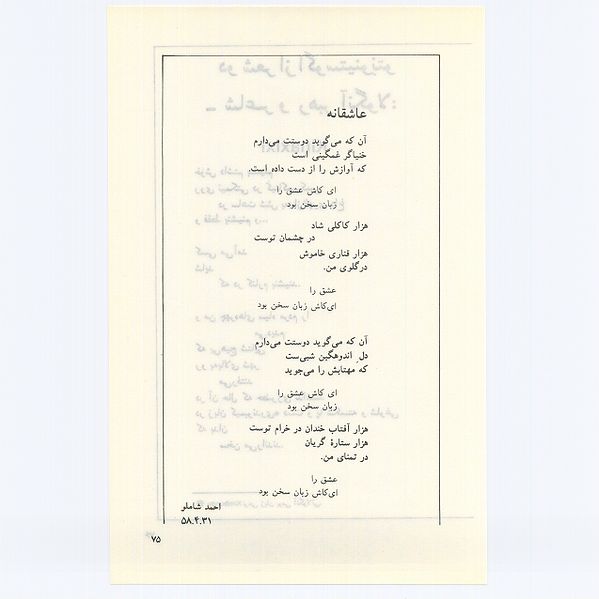 عاشقانه
آن که می‌گوید دوستت می‌دارم
خنیاگر غمگینی است
که آوازش را از دست داده است.
ای کاش عشق را
زبان سخن بود
هزار کاکلی شاد
در چشمان توست
هزار قناری خاموش
درگلوی من.
عشق را
ای‌کاش زبان سخن بود
آن که می‌گوید دوستت می‌دارم
دل اندوهگین شبی‌ست
که مهتابش را می‌جوید
ای کاش عشق را
زبان سخن بود
هزار آفتاب خندان در خرام توست
هزار ستارهٔ گریان
در تمنای من.
عشق را
ای‌کاش زبان سخن بود
احمد شاملو
۵۸.۴.۳۱
۷۵